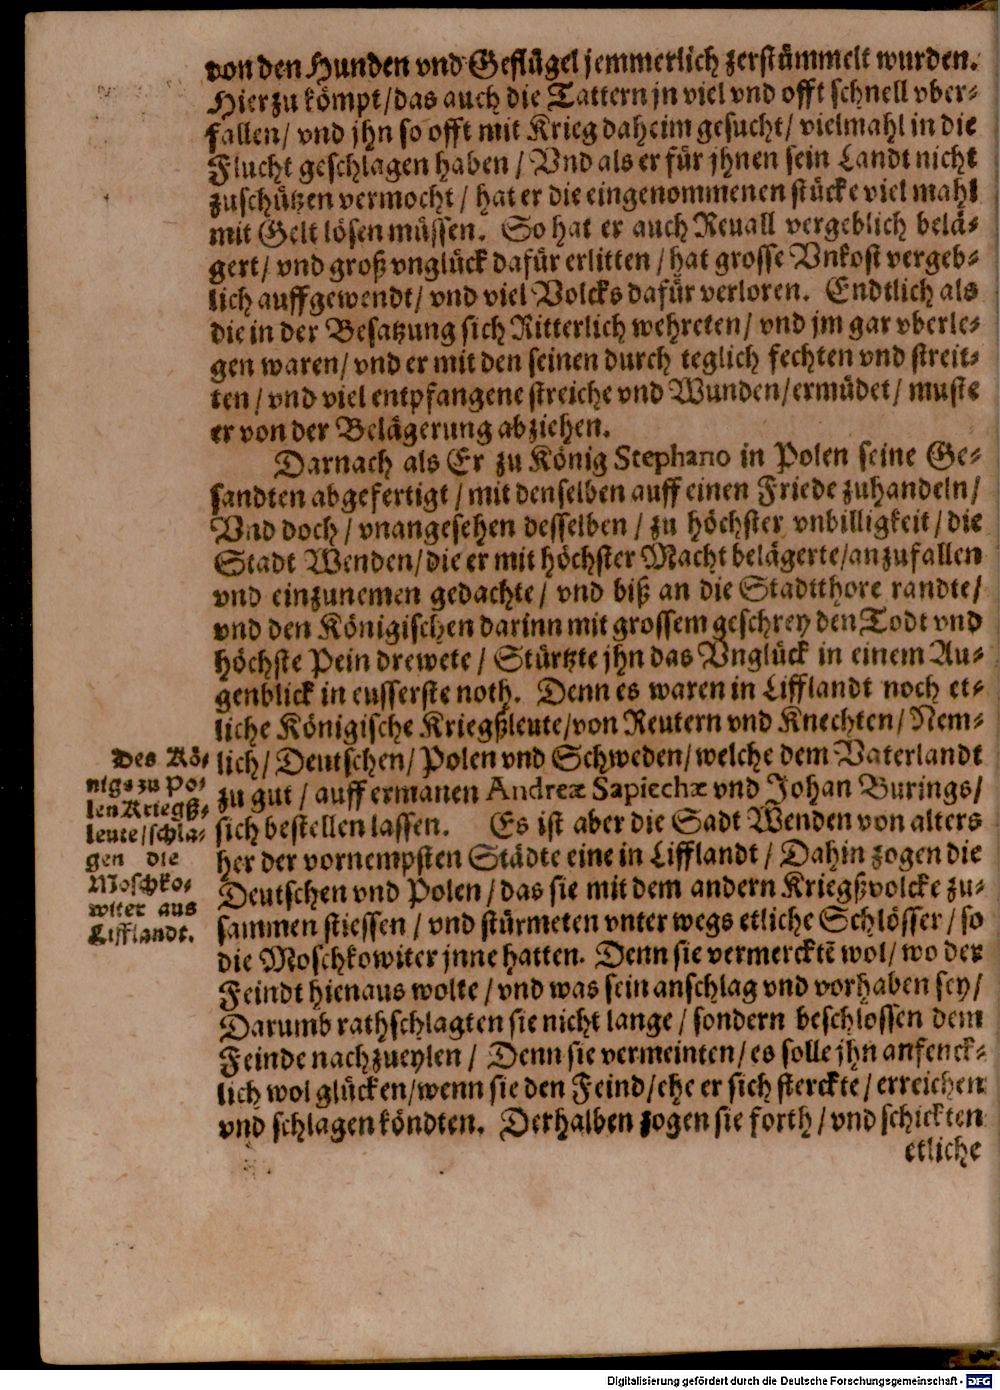 von den Hunden vnd Geflügel jemmerlich zerstümmelt wurden.
Hierzu kömpt/das auch die Tattern jn viel vnd offt schnell vber-
fallen/ vnd jhn so offt mit Krieg daheim gesucht/ vielmahl in die
Flucht geschlagen haben / Vnd als er für jhnen sein Landt nicht
zuschützen vermocht / hat er die eingenommenen stücke viel mahl
mit Gelt lösen müssen. So hat er auch Reuall vergeblich belä-
gert/ vnd groß vnglück dafür erlitten / hat grosse Vnkost vergeb-
lich auffgewendt/ vnd viel Volcks dafür verloren. Endtlich als
die in der Besatzung sich Ritterlich wehreten/ vnd jm gar vberle-
gen waren/ vnd er mit den seinen durch teglich fechten vnd streit-
ten / vnd viel entpfangene streiche vnd Wunden/ermüdet/ muste
er von der Belägerung abziehen.
Darnach als Er zu König Stephano in Polen seine Ge-
sandten abgefertigt / mit denselben auff einen Friede zuhandeln/
Vnd doch / vnangesehen desselben / zu höchster vnbilligkeit / die
Stadt Wenden/die er mit höchster Macht belägerte/anzufallen
vnd einzunemen gedachte/ vnd biß an die Stadtthore randte/
vnd den Königischen darinn mit grossem geschrey den Todt vnd
höchste Pein drewete / Stürtzte jhn das Vnglück in einem Au-
genblick in eusserste noth. Denn es waren in Lifflandt noch et-
liche Königische Kriegßleute/von Reutern vnd Knechten/ Nem-
lich/ Deutschen/ Polen vnd Schweden/welche dem Vaterlandt
zu gut / auff ermanen Andreæ Sapiechæ vnd Johan Burings/
sich bestellen lassen. Es ist aber die Sadt Wenden von alters
her der vornempsten Städte eine in Lifflandt / Dahin zogen die
Deutschen vnd Polen / das sie mit dem andern Kriegßvolcke zu-
sammen stiessen / vnd stürmeten vnter wegs etliche Schlösser / so
die Moschkowiter jnne hatten. Denn sie vermercktẽ wol/ wo der
Feindt hienaus wolte / vnd was sein anschlag vnd vorhaben sey/
Darumb rathschlagten sie nicht lange / sondern beschlossen dem
Feinde nachzueylen / Denn sie vermeinten/ es solle jhn anfenck-
lich wol glücken/wenn sie den Feind/ehe er sich sterckte/ erreichen
vnd schlagen köndten. Derhalben zogen sie forth / vnd schickten
etliche
Des Kö-
nigs zu Po-
len Kriegß-
leute/schla-
gen die
Moschko-
witer aus
Lifflandt.
Digitalisierung gefördert durch die Deutsche Forschungsgemeinschaft - DFG